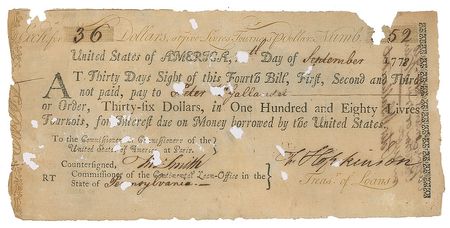 Exch. for 36 Dollars, at five Livres Tournois Dollar, Numb. 52
United States of AMERICA, th Day of September 177
AT Thirty Days Sight of this Fourth Bill, First, Second and Third
not paid, pay to Peter
or Order, Thirty-six Dollars, in One Hundred and Eighty Livres
Tournois, for Interest due on Money borrowed by the United States.
To the Commissioner or Commissioners of the
United States of America at Paris.
Countersigned, Tho Smith
F Hopkinson
RT Commissioner of the Continental Loan-Office in the
State of Pennsylvania
Treasr. of Loans